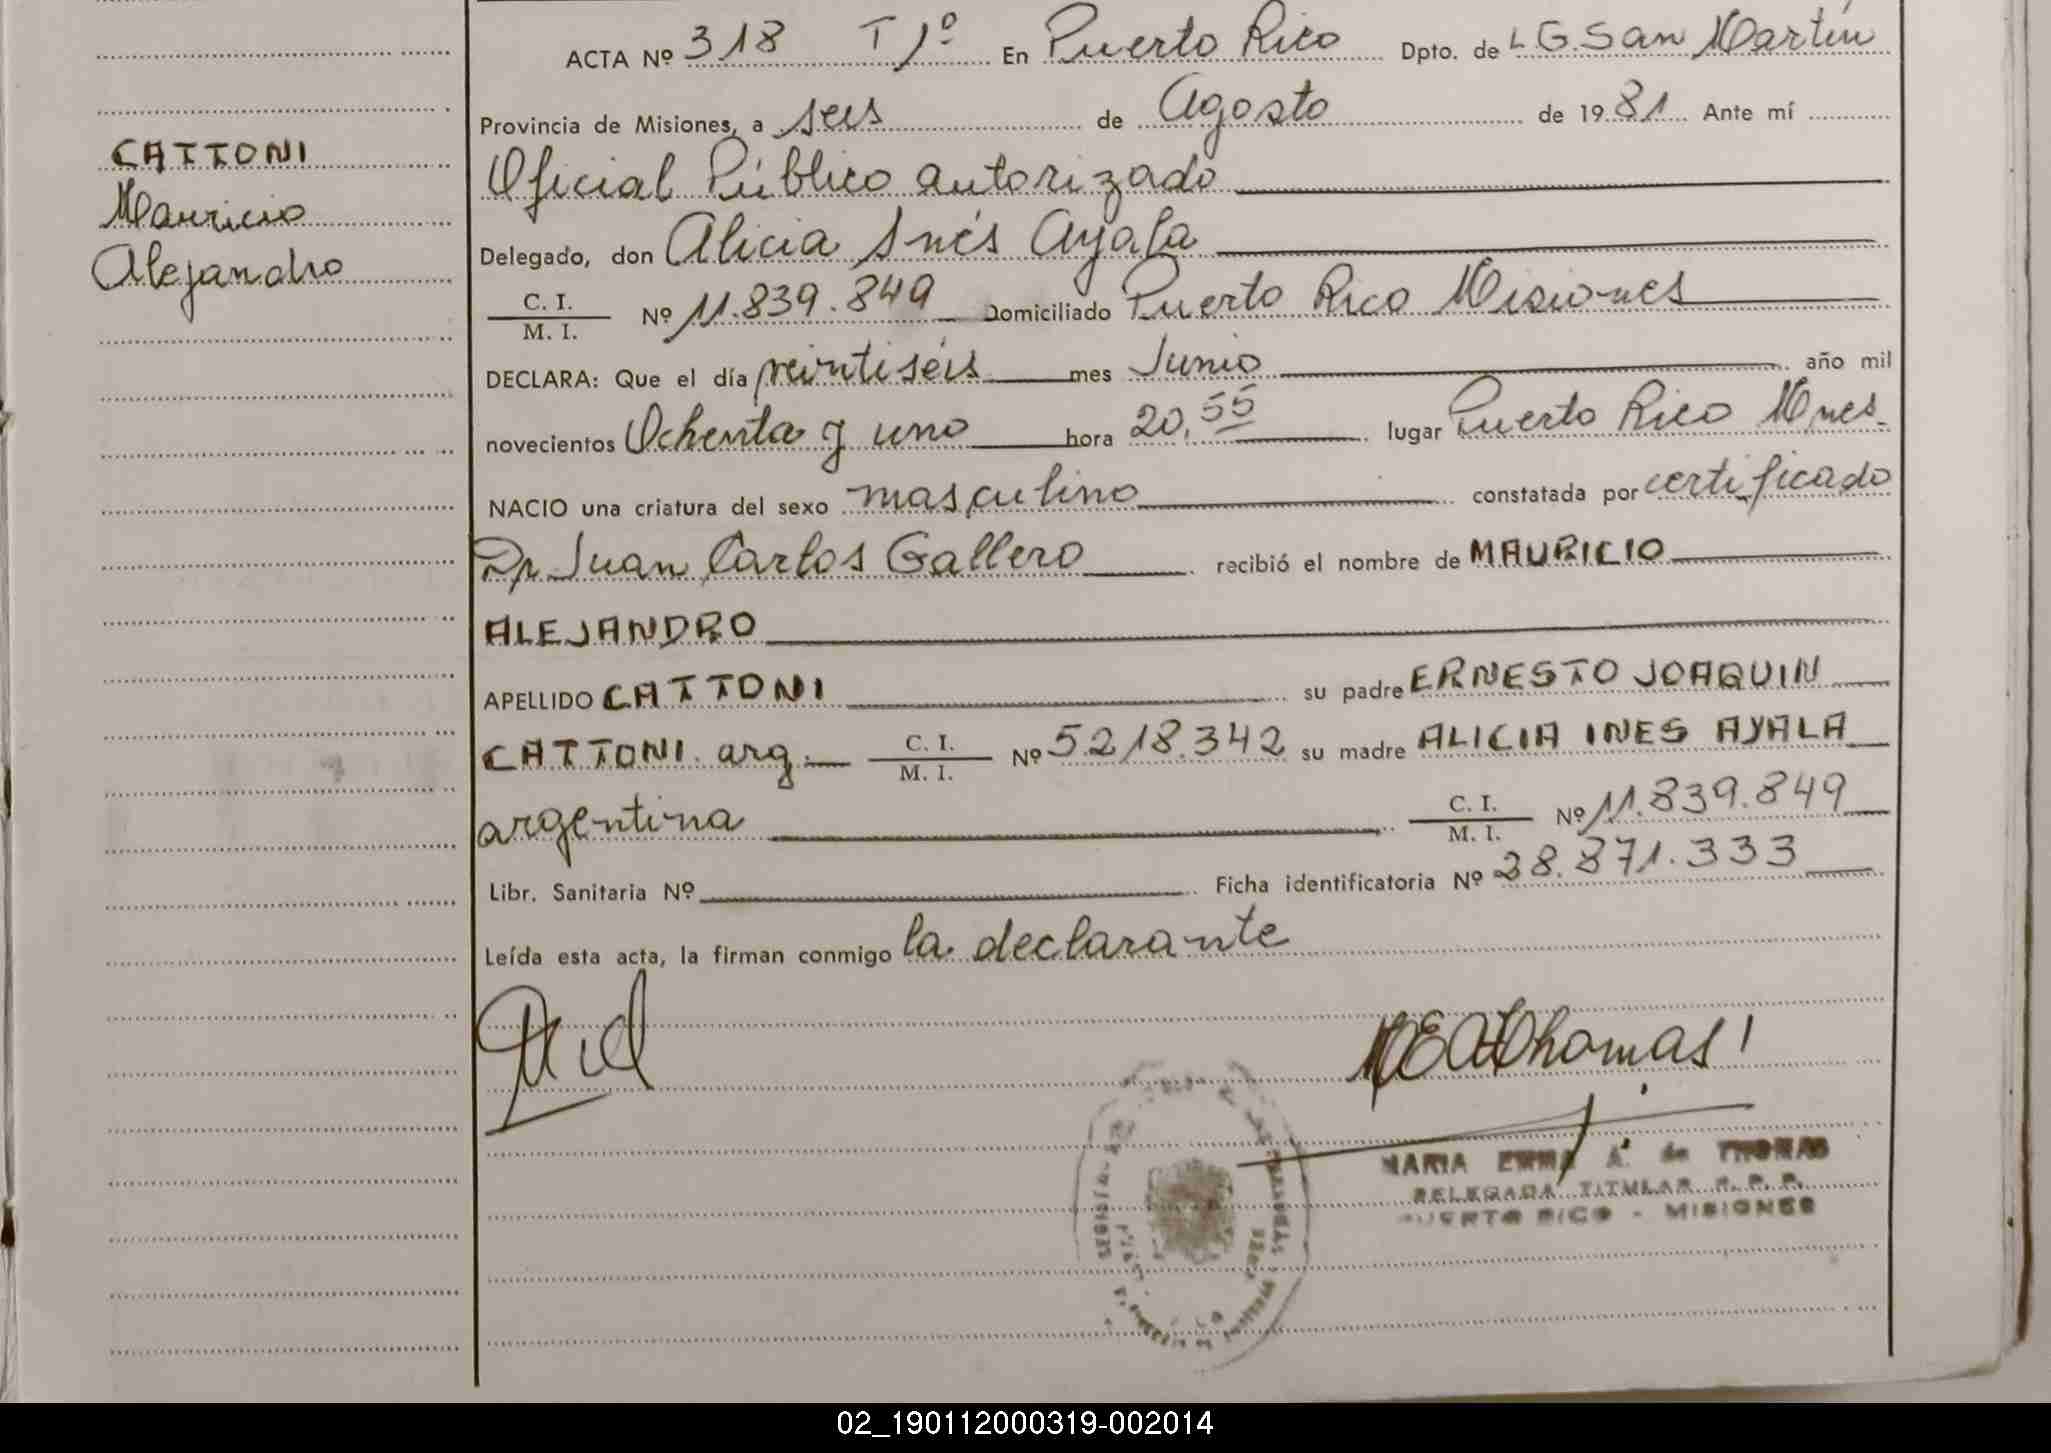 ACTA Nº 318 T 1º En Puerto Rico Dpto. de L G. San Martín
Provincia de Misiones, a seis de Agosto de 1981 Ante mí
CATTONI
Mauricio
Alejandro
Oficial Público autorizado
Delegado, don Alicia Inés Ayala
C. I.
M. I.
Nº 11.839.849 Domiciliado Puerto Rico Misiones
DECLARA: Que el día veintiséis mes Junio año mil
novecientos Ochenta y uno hora 20,55 lugar Puerto Rico Mnes.
NACIO una criatura del sexo masculino constatada por certificado
Dr. Juan Carlos Gallero recibió el nombre de MAURICIO
ALEJANDRO
APELLIDO CATTONI su padre ERNESTO JOAQUIN
CATTONI. arg. C. I. M. I. Nº 5.218.342 su madre ALICIA INES AYALA
argentina C. I. M. I. Nº 11.839.849
Libr. Sanitaria Nº Ficha identificatoria Nº 28.871.333
Leída esta acta, la firman conmigo la declarante
MARIA EMMA A. de THOMAS
DELEGADA TITULAR R. P. P.
PUERTO RICO - MISIONES
02_190112000319-002014